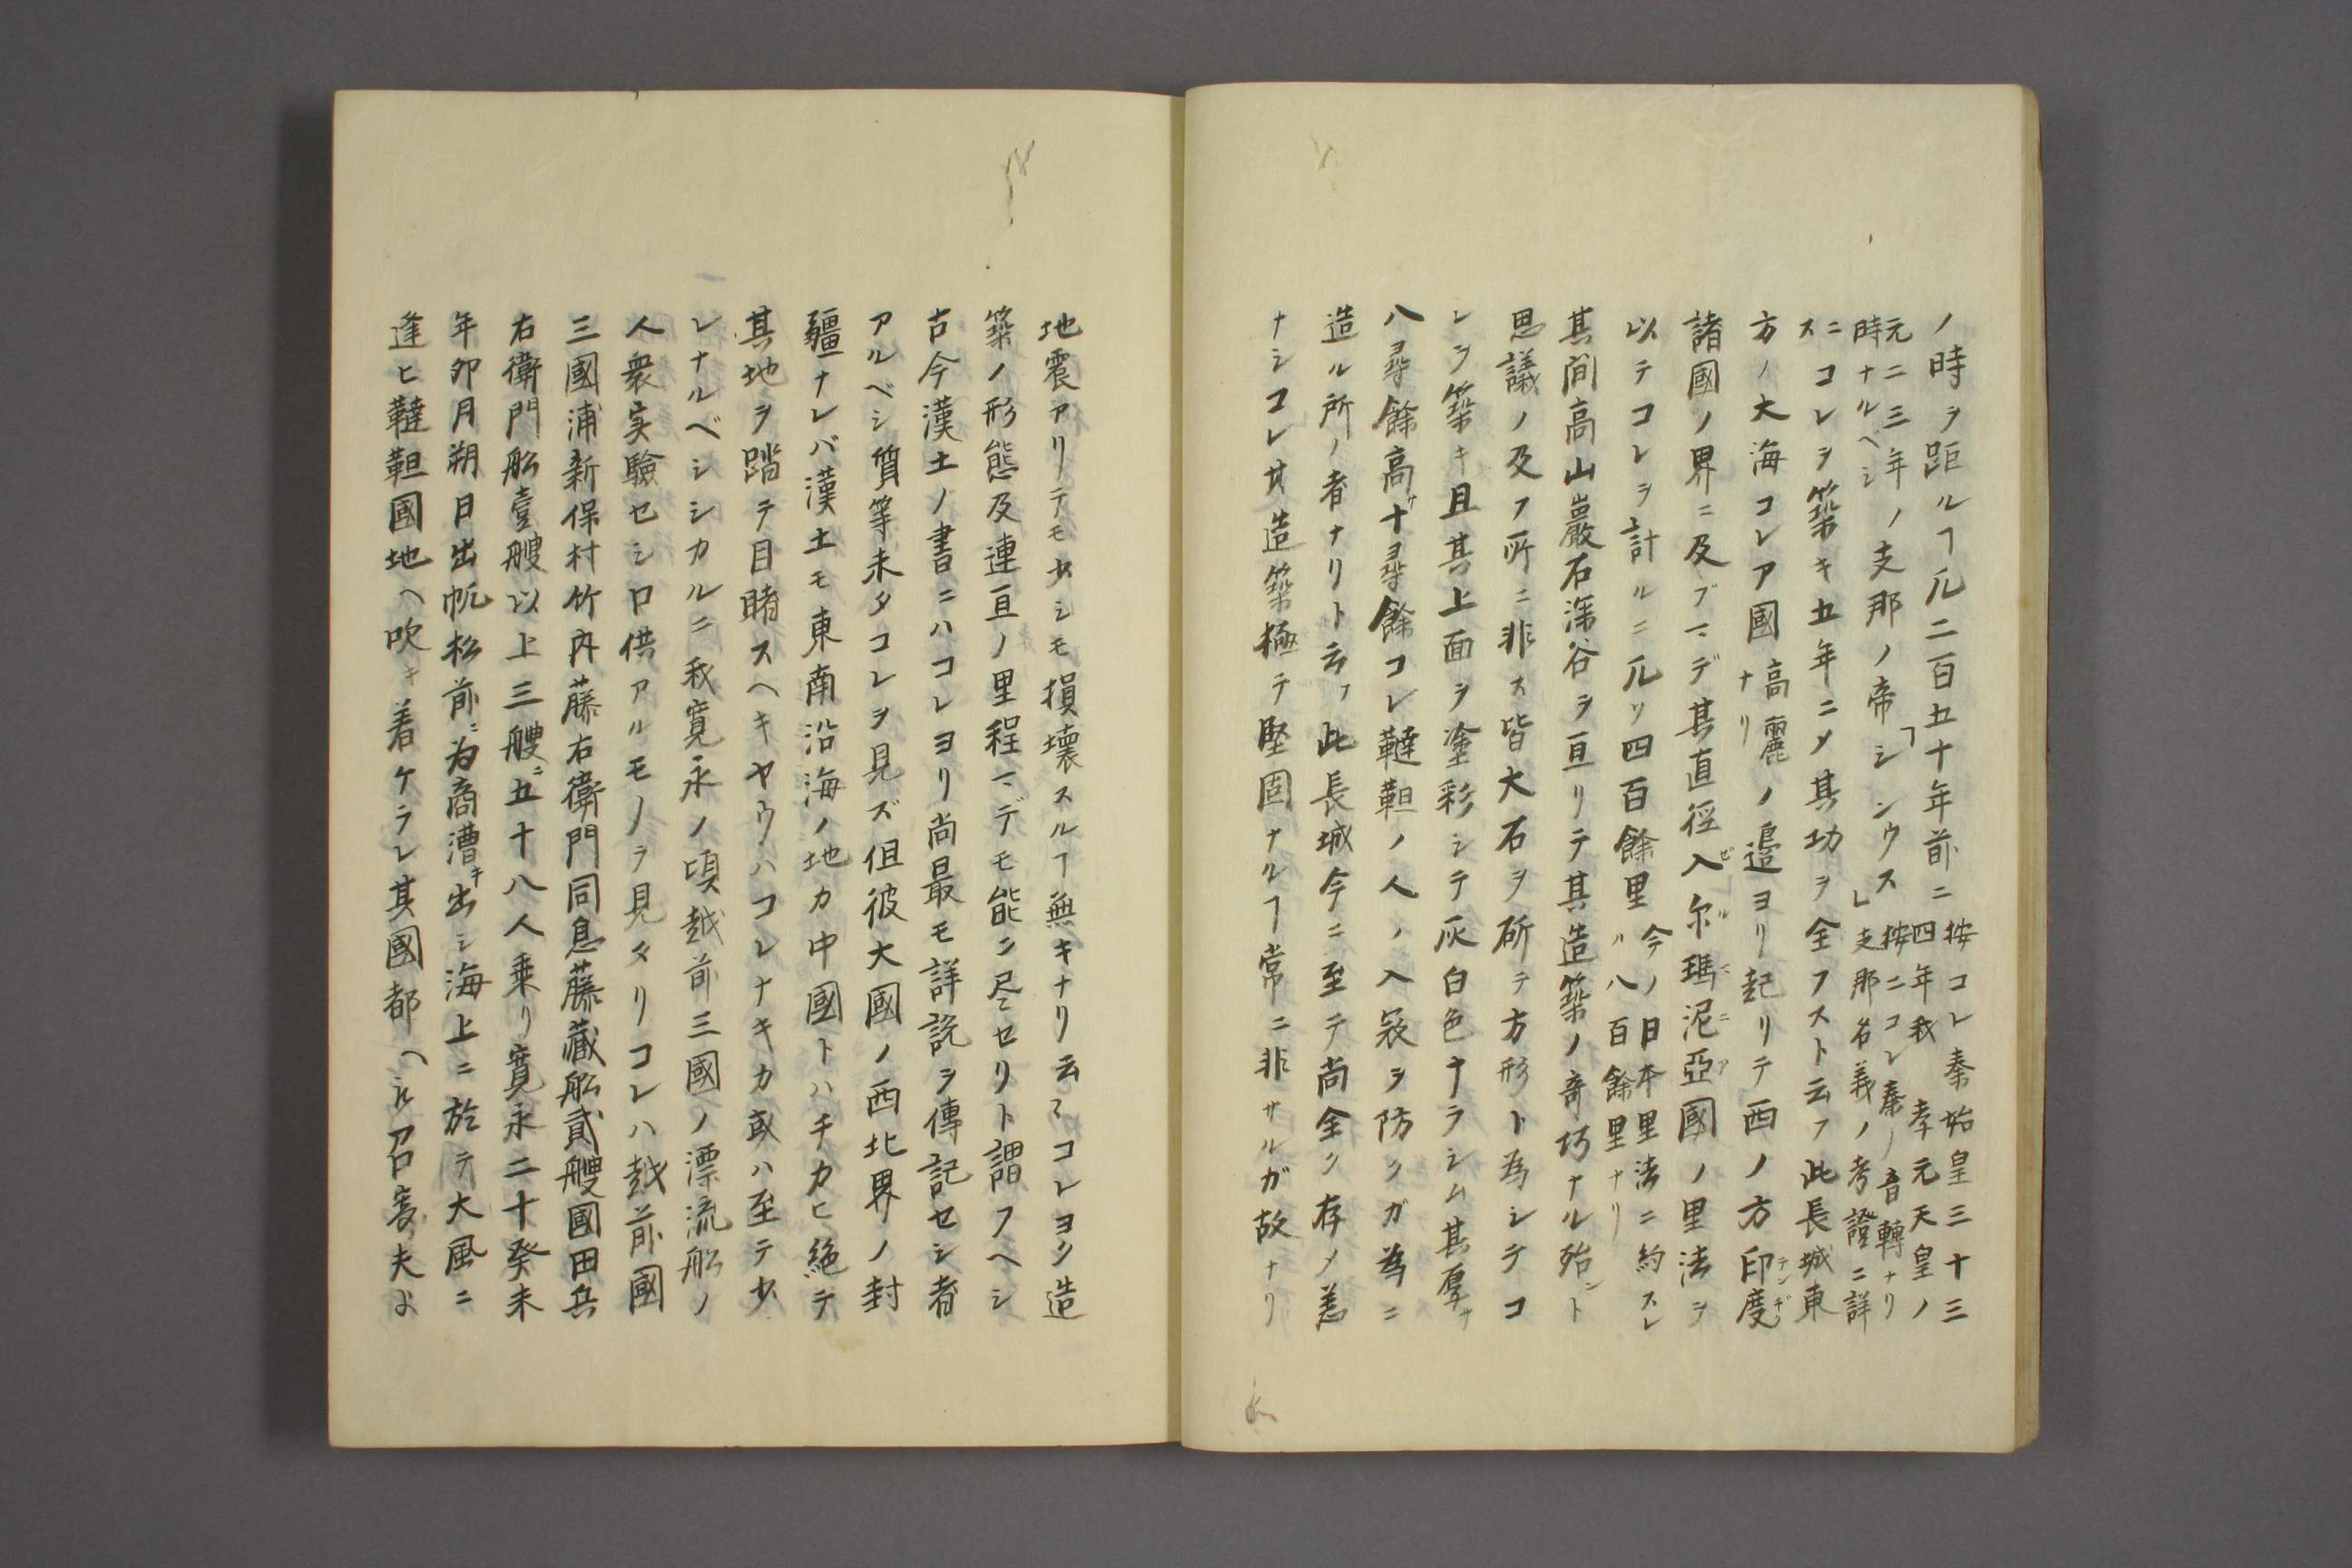 ノ時ヲ距ルヿ凡二百五十年前ニ
按コレ秦始皇三十三
四年我孝元天皇ノ
元二三年ノ支那ノ帝「シンウス」
時ナルベシ
按ニコレ秦ノ音轉ナリ
支那名義ノ考證ニ詳
ニコレヲ築キ五年ニメ其功ヲ全フスト云フ此長城東
ス
方ノ大海コレア國高麗ナリノ邉ヨリ起リテ西ノ方印度
諸國ノ界ニ及ブマデ其直徑入尔瑪泥亞國ノ里法ヲ
以テコレヲ計ルニ凡ソ四百餘里
今ノ日本里法ニ約スレ
ハ八百餘里ナリ
其間高山巖石深谷ヲ亘リテ其造築ノ奇巧ナル殆ント
思議ノ及フ所ニ非ス皆大石ヲ斫テ方形ト為シテコ
レヲ築キ且其上面ヲ塗彩シテ灰白色ナラシム其厚サ
八尋餘高サ十尋餘コレ韃靼ノ人ノ入冦ヲ防クガ為ニ
造ル所ノ者ナリト云フ此長城今ニ至テ尚全ク存メ恙
ナシコレ其造築極テ堅固ナルヿ常ニ非サルガ故ナリ
地震アリテモ少シモ損壊スルヿ無キナリ云々コレヨク造
築ノ形態及連亘ノ里程マデモ能ク尽セリト謂フヘシ
古今漢土ノ書ニハコレヨリ尚最モ詳説ヲ傳記セシ者
アルベシ質等未タコレヲ見ズ但彼大國ノ西北界ノ封
疆ナレバ漢土モ東南沿海ノ地カ中國トハチカヒ絶テ
其地ヲ踏テ目睹スヘキヤウハコレナキカ或ハ至テ少
レナルベシシカルニ我寛永ノ頃越前三國ノ漂流舩ノ
人衆実驗セシ口供アルモノヲ見タリコレハ越前國
三國浦新保村竹内藤右衛門同息藤蔵舩貮艘國田兵
右衛門舩壹艘以上三艘ニ五十八人乗リ寛永二十癸未
年卯月朔日出帆松前ニ為商漕キ出シ海上ニ於テ大風ニ
逢ヒ韃靼國地ヘ吹キ着ケラレ其國都ヘ被召寄夫よ